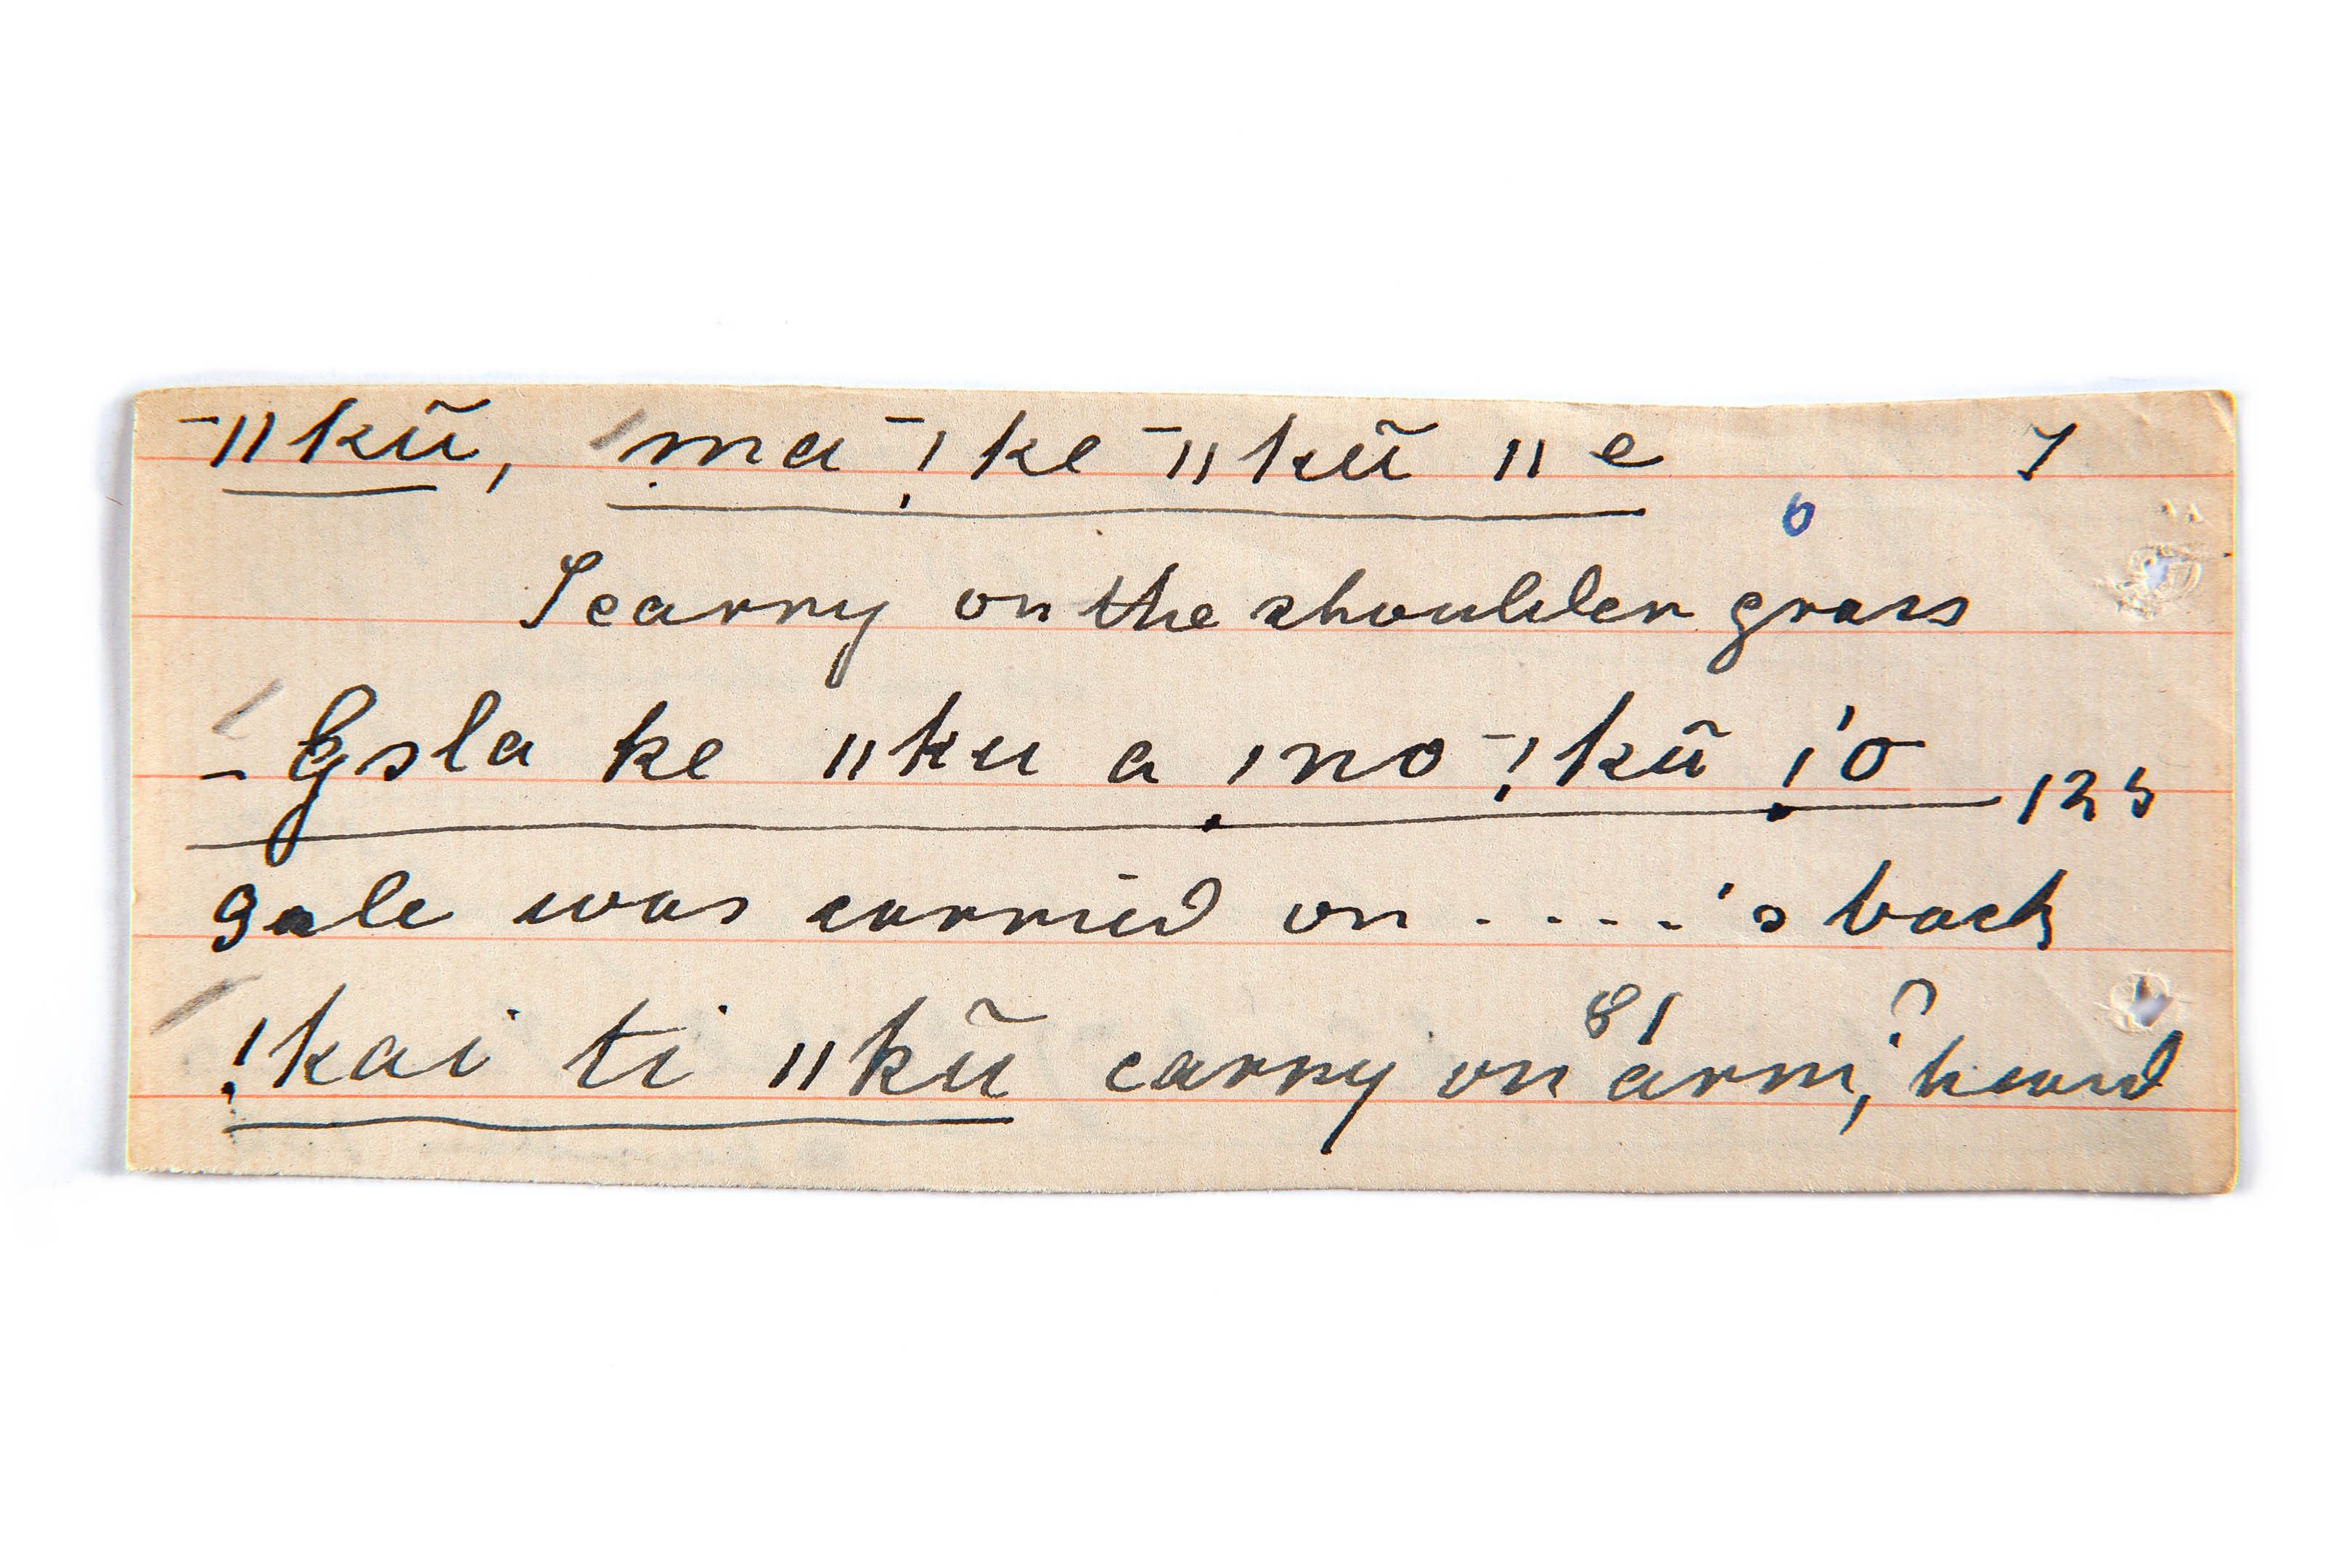 ‾ǁkũ, ma ‾!ke ‾ǁkũ ǁe 7
6
I carry on the shoulder grass
_Gsla ke ǁku a !no ‾!kũ !'o 125
gale was carried on ....'s back
!kai ti ǁkũ carry on arm, ? hand
81